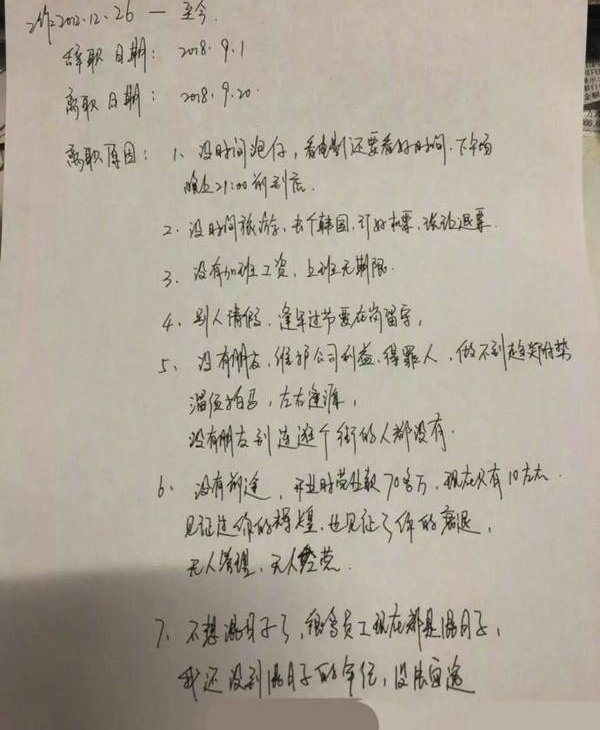 工作2012.12.26 — 至今.
辞职日期: 2018.9.1
离职日期: 2018.9.20.
离职原因: 1、没时间泡仔,看电影还要看好时间.下午场
晚上21:00前到底.
2. 没时间旅游,去个韩国,订好机票,被迫退票.
3. 没有加班工资,上班无期限.
4、别人请假,逢年过节要在岗留守,
5、没有朋友,维护公司利益,得罪人,做不到趋炎附势
溜须拍马,左右逢源,
没有朋友到连逛个街的人都没有.
6、没有前途,开业时营业款70多万,现在只有10左右.
见证过你的辉煌,也见证了你的衰退,
无人管理,无人经营.
7、不想混日子了,很多员工现在都是混日子,
我还没到混日子的年纪,没法面对